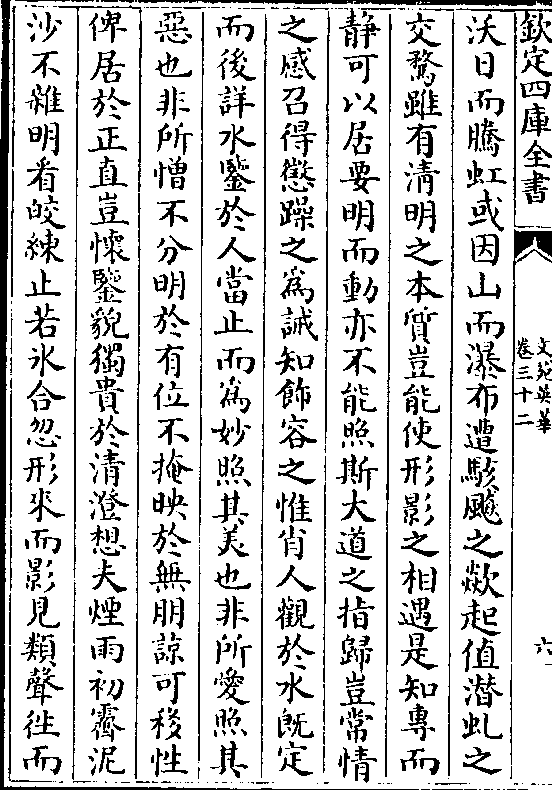 欽定四庫全書
文苑英華
卷三十二
六
沃日而騰虹或因山而瀑布遭駭飈之歘起值潛虬之
交騖雖有清明之本質豈能使形影之相遇是知專而
靜可以居要明而動亦不能照斯大道之指歸豈常情
之感召得懲躁之為誡知飾容之惟肖人觀於水既定
而後詳水鑒於人當止而為妙照其美也非所愛照其
惡也非所憎不分明於有位不掩映於無朋諒可移性
俾居於正直豈懷鑒貌獨貴於清澄想夫煙雨初霽泥
沙不雜明看皎練止若氷合忽形來而影見類聲徃而